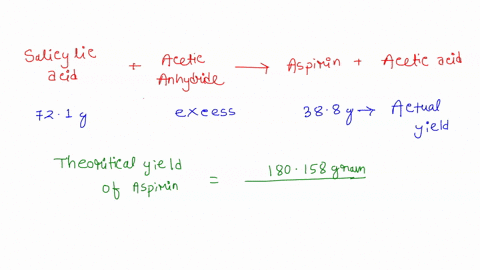 Salicylic acid + Acetic Anhydride → Aspirin + Acetic acid
72.1 g excess 38.8 g → Actual yield
Theoritical yield of Aspirin = 180.158 gram